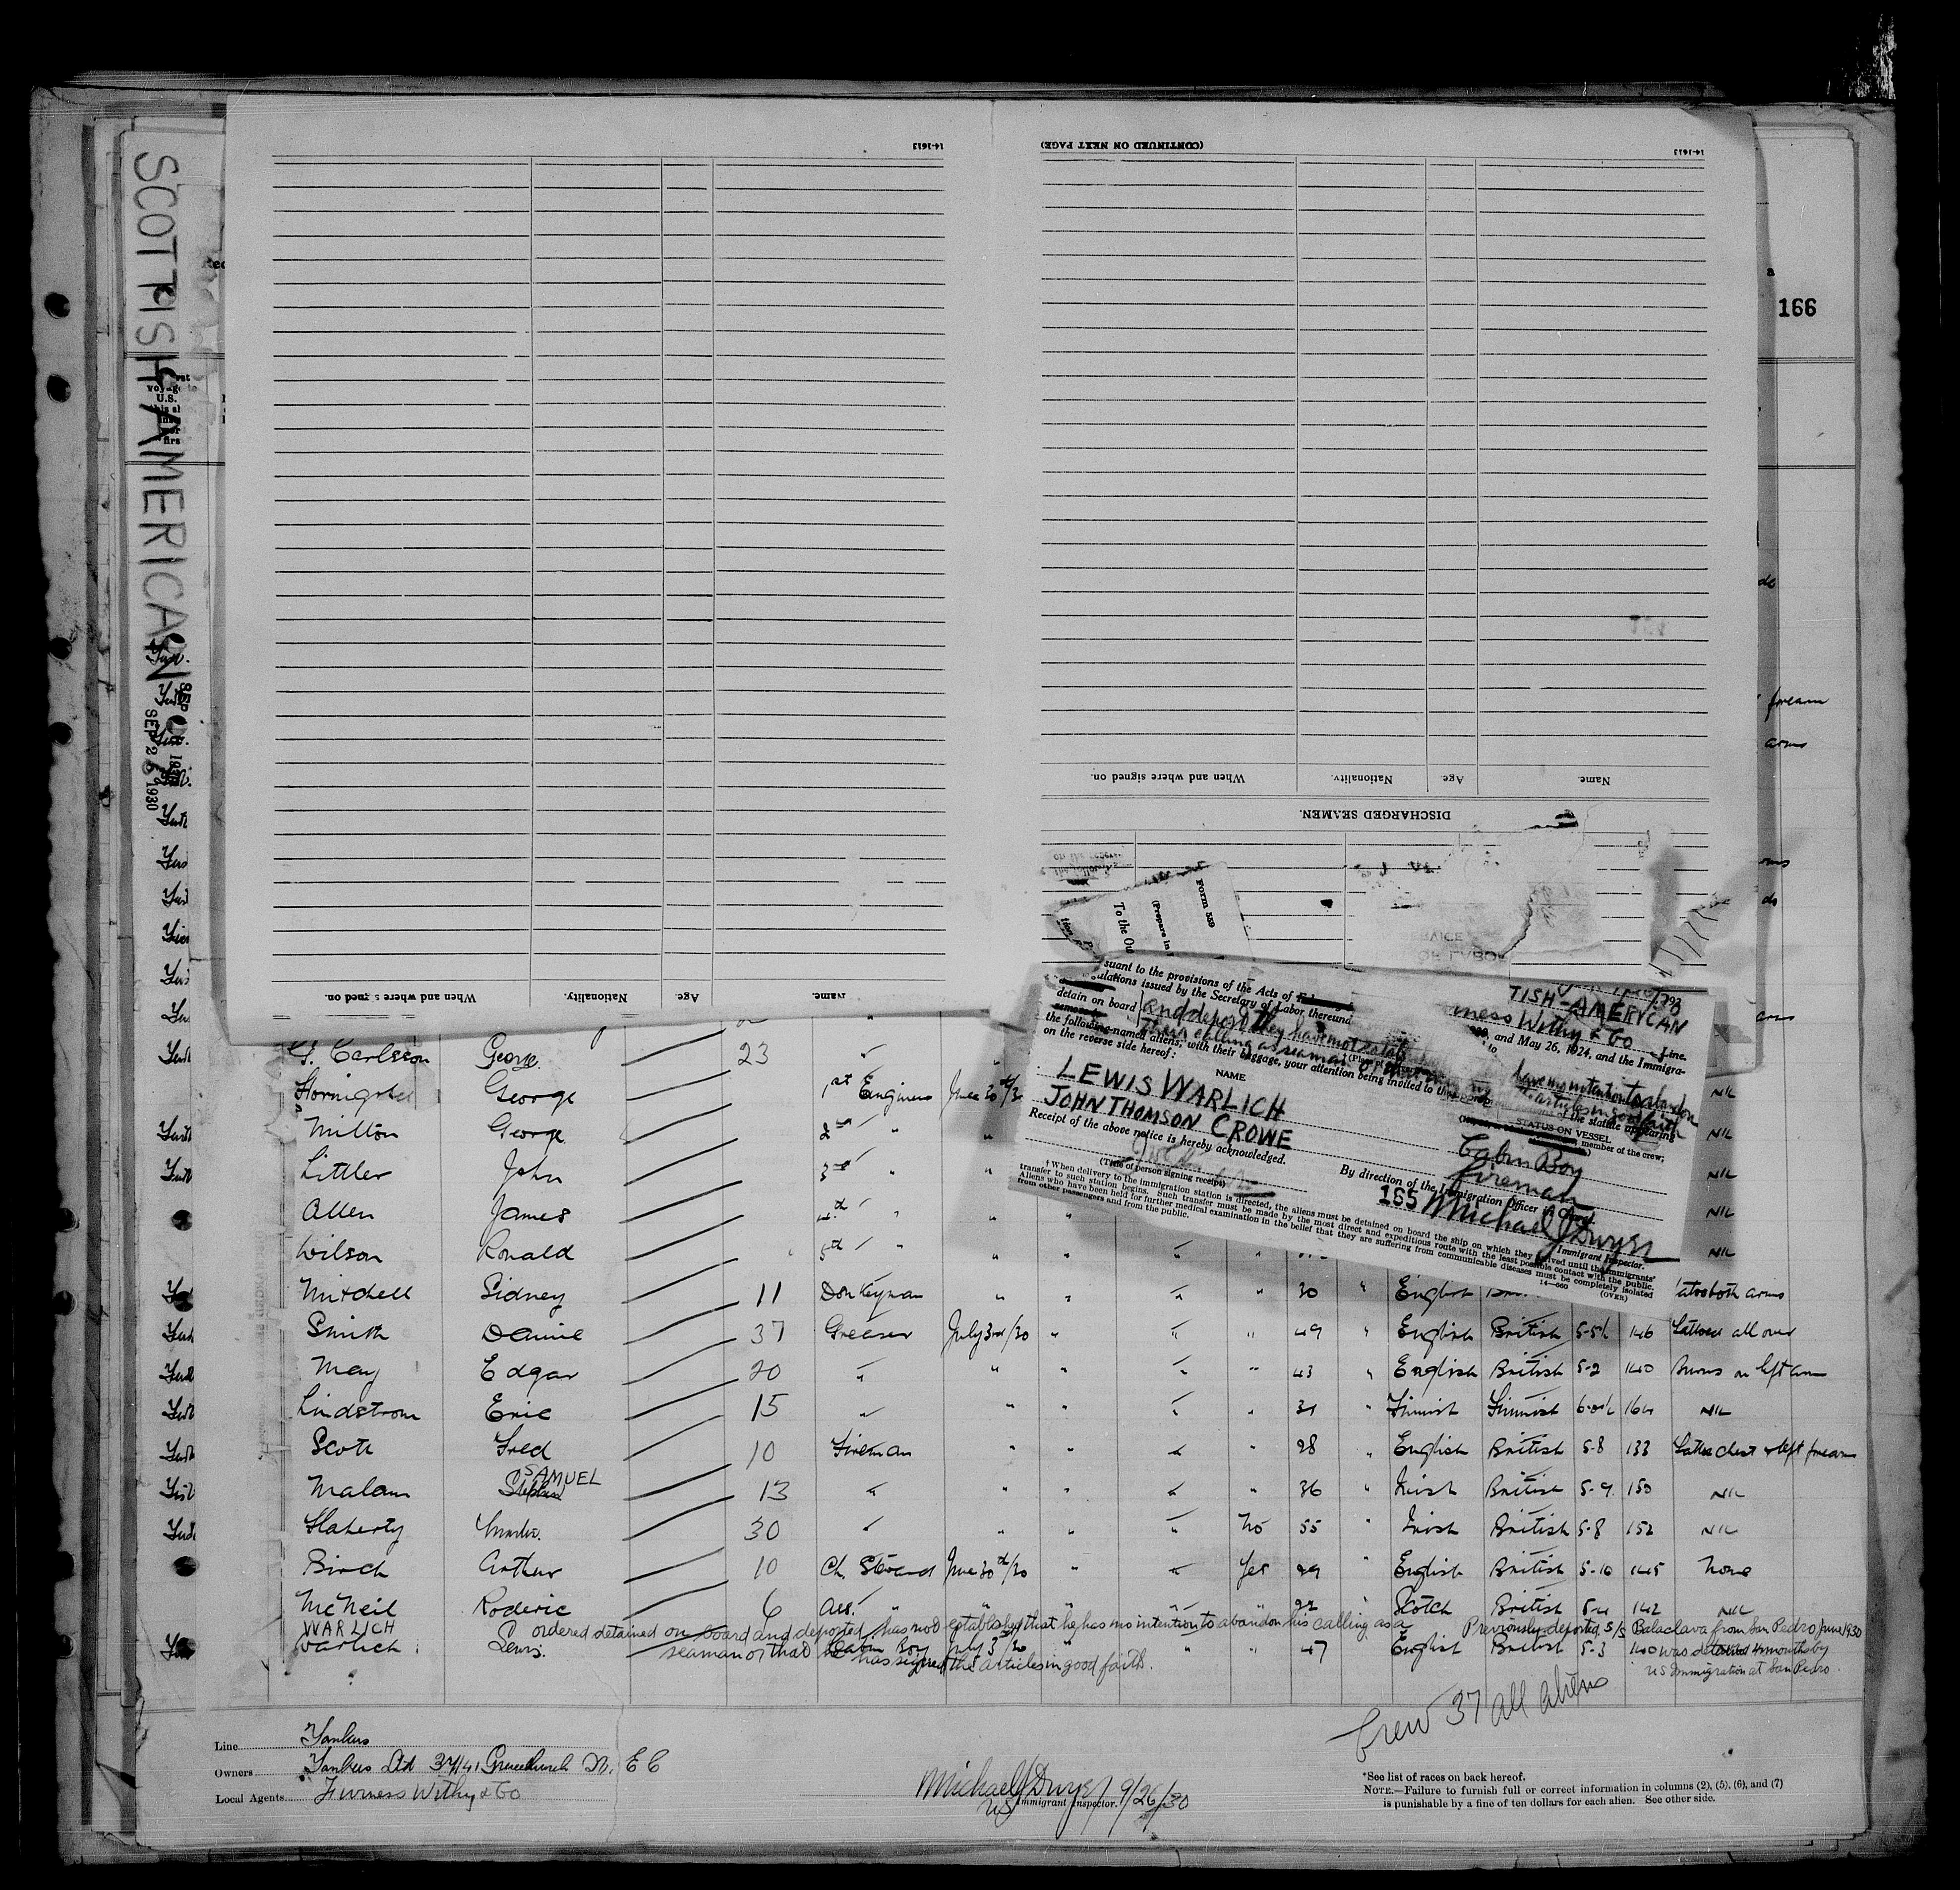 SCOTTISH AMERICAN
SEP 26 1930
166
14-1613
(CONTINUED ON NEXT PAGE)
14-1613
When and where signed on. Nationality. Age. Name.
DISCHARGED SEAMEN.
When and where signed on. Nationality. Age. Name.
Form 539
(Prepare in
To the
suant to the provisions of the Acts of
TISH-AMERICAN
ness Withy & Co Line.
and May 26, 1924, and the Immigra-
ulations issued by the Secretary of Labor thereund
detain on board and deport they have not
their calling as seaman
have no intention to abandon
the articles in good faith
the following-named aliens, with their baggage, your attention being invited to the
of the statute appearing
on the reverse side hereof:
NAME
STATUS ON VESSEL
member of the crew;
LEWIS WARLICH Cabin Boy
JOHN THOMSON CROWE fireman
Receipt of the above notice is hereby acknowledged.
By direction of the Immigration Officer in Charge.
(Title of person signing receipt)
165 Michael J Dwyer
Immigrant Inspector.
† When delivery to the immigration station is directed, the aliens must be detained on board the ship on which they arrived until the immigrants'
transfer to such station begins. Such transfer must be made by the most direct and expeditious route with the least possible contact with the public.
Aliens who have been held for further medical examination in the belief that they are suffering from communicable diseases must be completely isolated
from other passengers and from the public.
14—660 (OVER)
forearm
arms
G. Carlsson George 23 "
George 1st Engineer June 30th/30 NIL
Milton George 2nd " " NIL
Littler John 3rd " " NIL
Allen James 4th " " NIL
Wilson Ronald 5th " " NIL
Mitchell Sidney 11 Donkeyman " " " " 30 " English both arms
Smith Daniel 37 Greaser July 3rd/30 " " " 49 " English British 5-5½ 146 Tattooed all over
May Edgar 20 " " " " " 43 " English British 5-2 140 Burns on left arm
Lindstrom Eric 15 " " " " " 31 " Finnish Finnish 164 NIL
Scott Fred 10 Fireman " " " " 28 " English British 5-8 133 Tattoo chest & left forearm
Malam SAMUEL 13 " " " " " 36 " Irish British 5-9 150 NIL
Flaherty 30 " " " " No 55 " Irish British 5-8 152 NIL
Birch Arthur 10 Ch. Steward June 30th/30 " " Yes 29 " English British 5-10 145 None
McNeil Roderic 6 Ass. " " " " " 22 " Scotch British 5-4 142 NIL
WARLICH ordered detained on board and deported, has not established that he has no intention to abandon his calling as a Previously deported S/S Balaclava from San Pedro, June 1930
Warlich Lewis. seaman or that Cabin Boy July 3rd/30 " " " 47 " English British 5-3 140 was detained 4 months by
has signed the articles in good faith. US Immigration at San Pedro.
Crew 37 all aliens
Line Tankers
Owners Tankers Ltd 37/41 Gracechurch St. E C
Local Agents Furness Withy & Co
Michael J Dwyer 9/26/30
US Immigrant Inspector.
*See list of races on back hereof.
NOTE.—Failure to furnish full or correct information in columns (2), (5), (6), and (7)
is punishable by a fine of ten dollars for each alien. See other side.